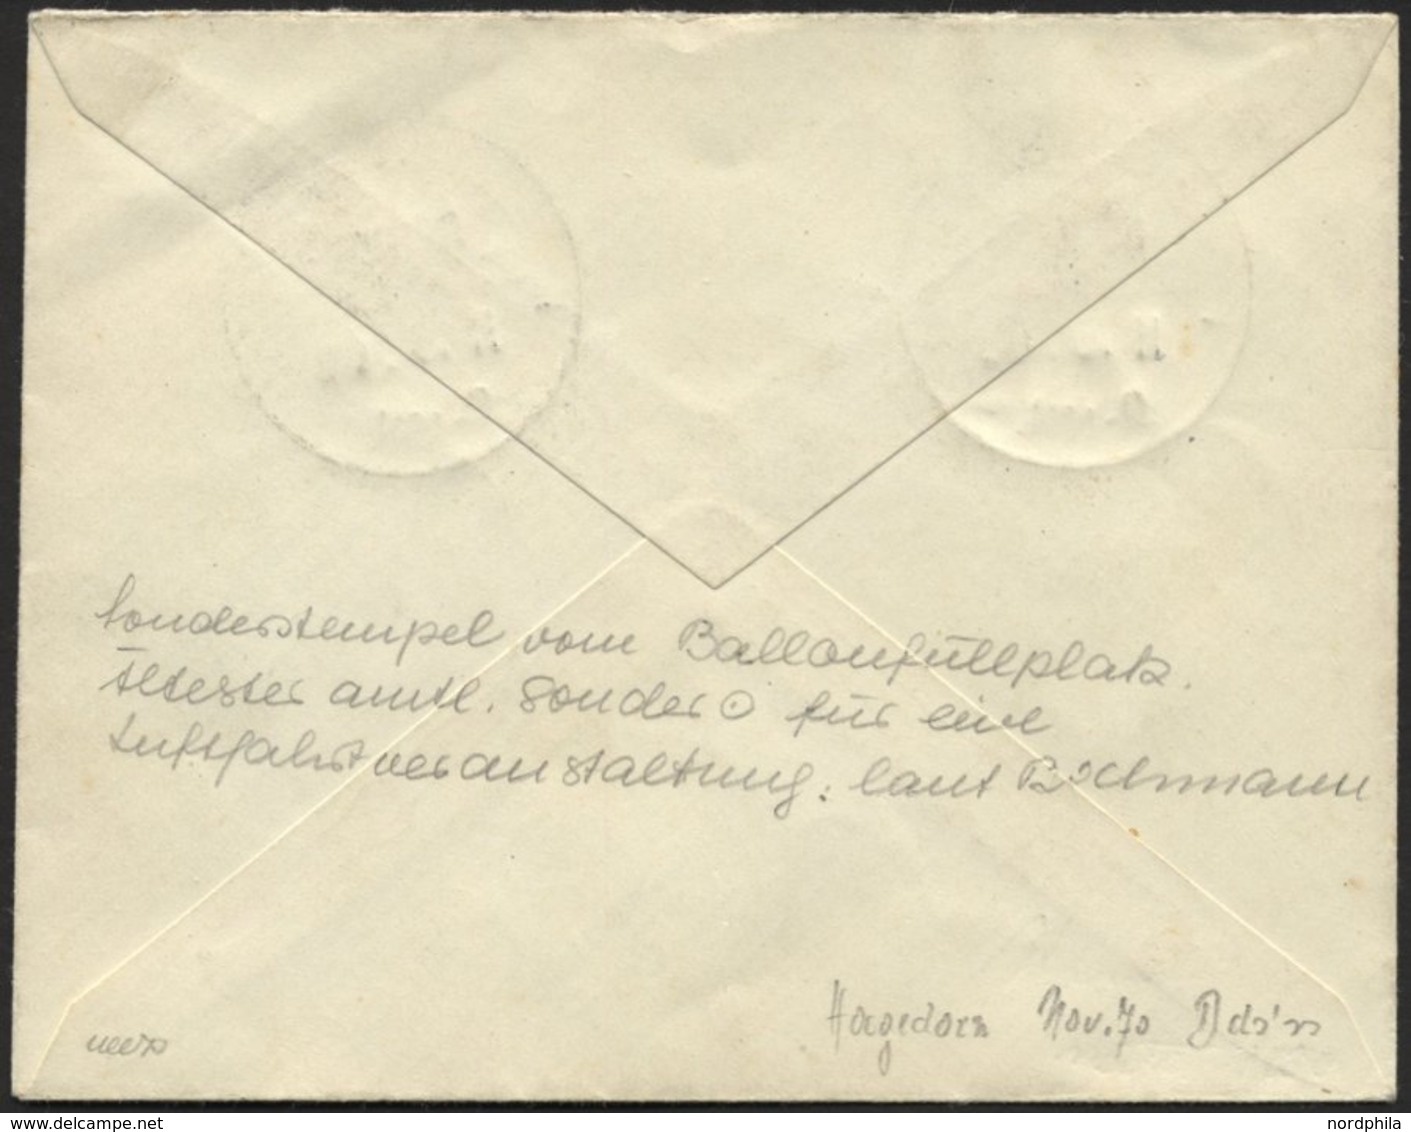 Sonderstempel vom Ballonfüllplatz.
Ältester amtl. Sonder⊙ für eine
Luftfahrtveranstaltung: laut Bochmann
Hagedorn Nov. 70
delcampe.net
nordphila